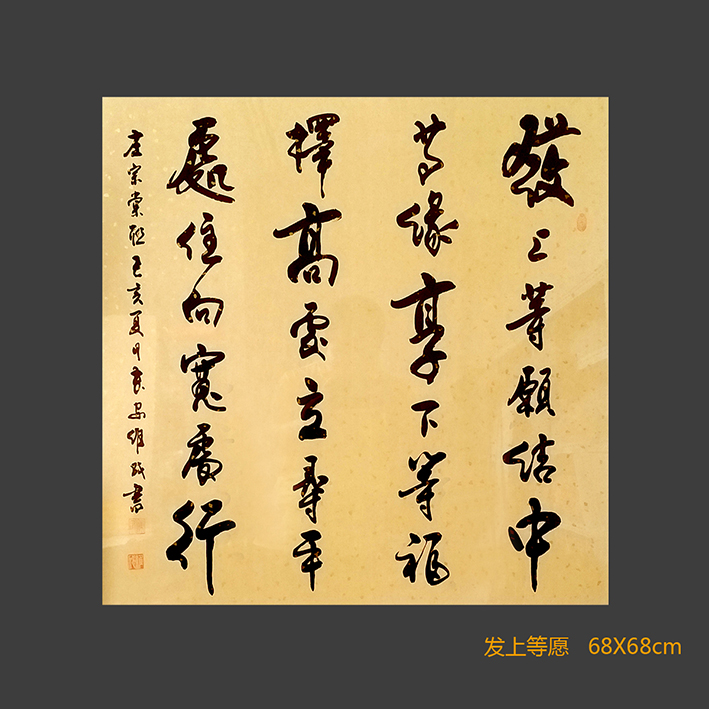 發上等願結中
等緣享下等福
擇高處立尋平
處住向寬處行
左宗棠聯己亥夏月維書
发上等愿 68X68cm